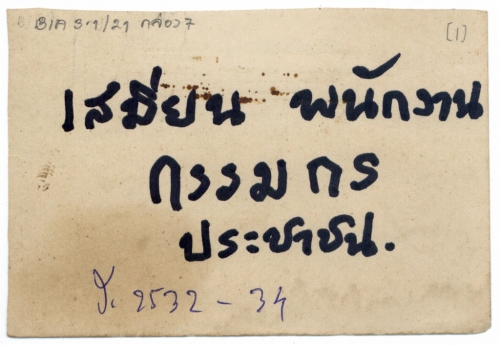 BIA 3.1/21 กล่อง 7
[1]
เสมียน พนักงาน
กรรมกร
ประชาชน.
ปี. 2532 - 34